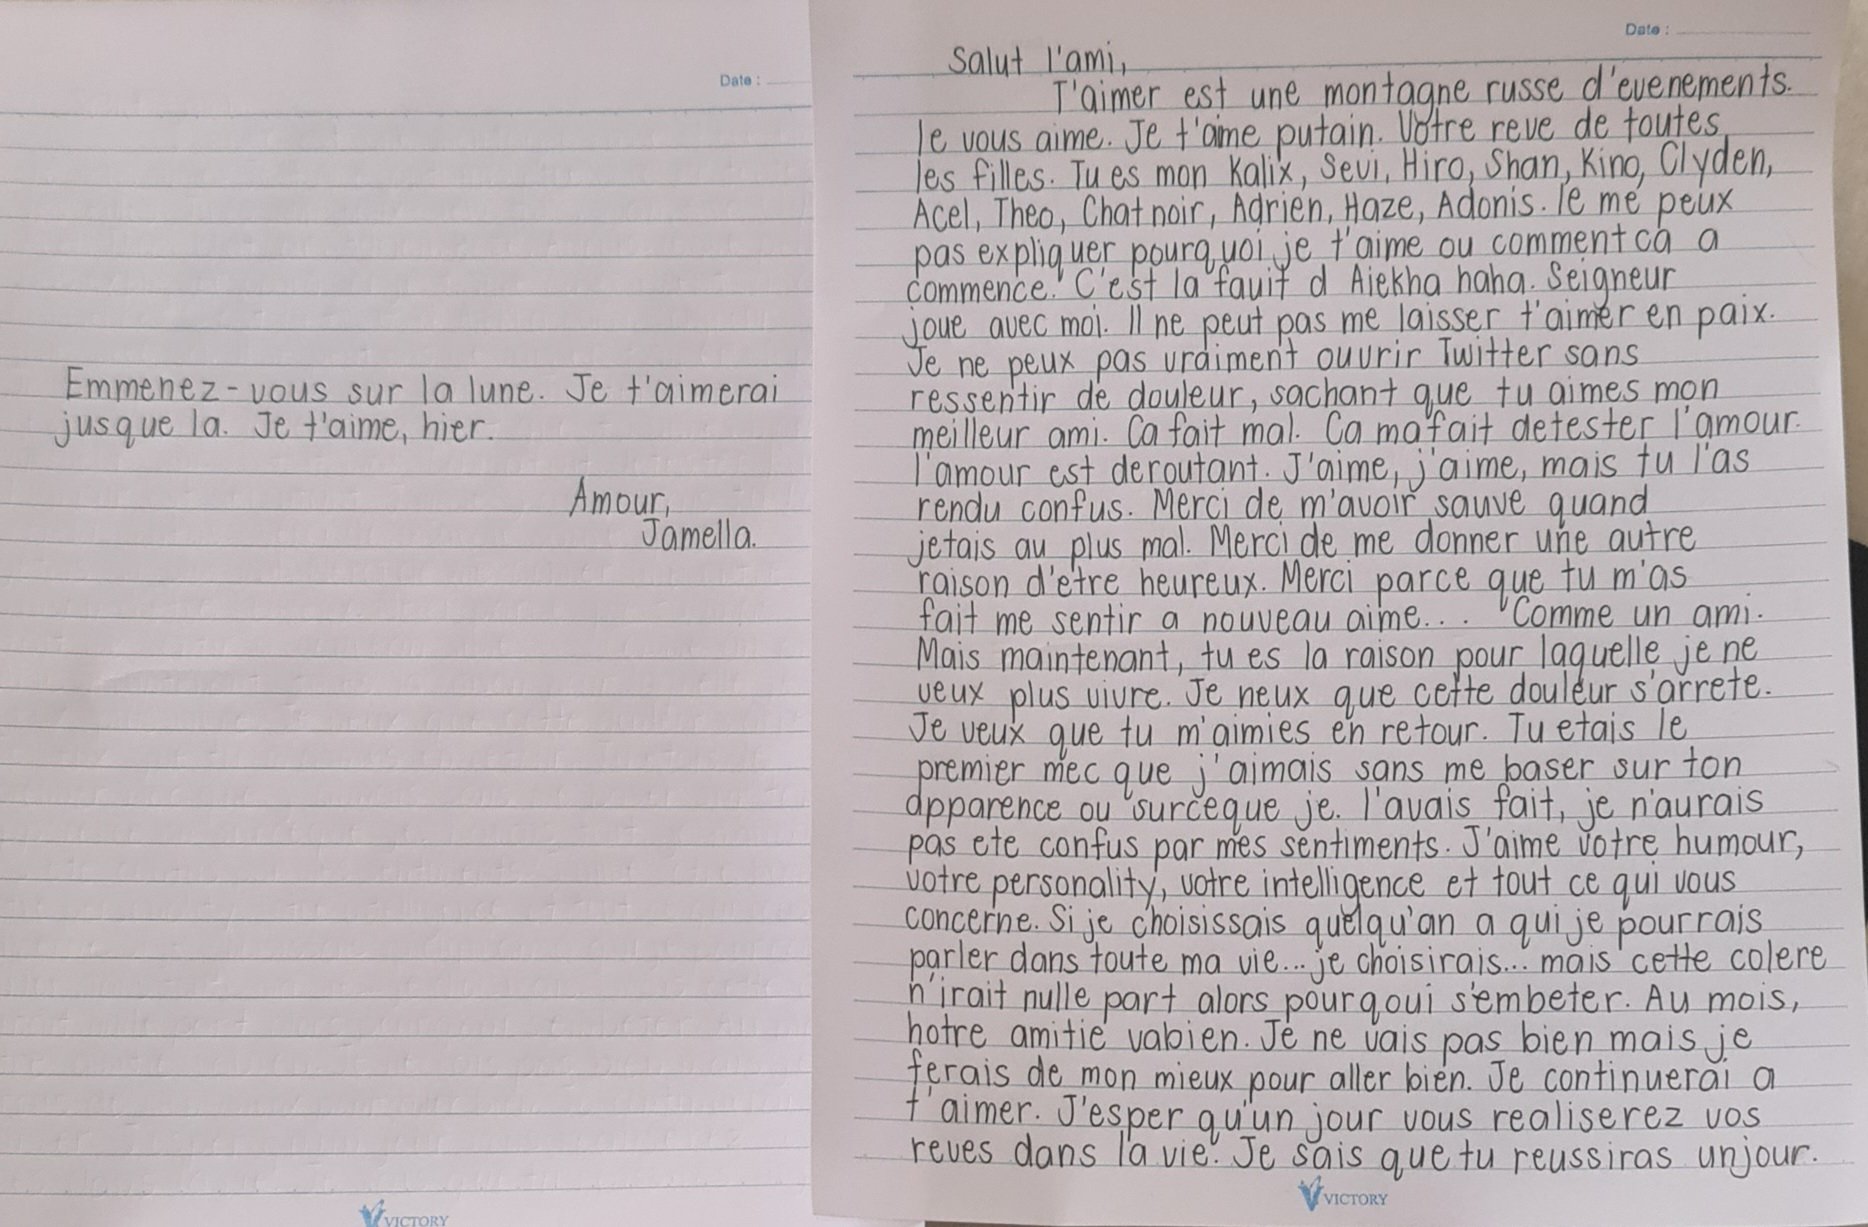 Date :
Salut l'ami,
T'aimer est une montagne russe d'evenements.
le vous aime. Je t'aime putain. Votre reve de toutes
les filles. Tu es mon Kalix, Sevi, Hiro, Shan, Kino, Clyden,
Acel, Theo, Chat noir, Adrien, Haze, Adonis. le me peux
pas expliquer pourquoi je t'aime ou comment ca a
commence. C'est la fauit d Aiekha haha. Seigneur
joue avec moi. Il ne peut pas me laisser t'aimer en paix.
Je ne peux pas vraiment ouvrir Twitter sans
ressentir de douleur, sachant que tu aimes mon
meilleur ami. Ca fait mal. Ca ma fait detester l'amour.
l'amour est deroutant. J'aime, j'aime, mais tu l'as
rendu confus. Merci de m'avoir sauve quand
jetais au plus mal. Merci de me donner une autre
raison d'etre heureux. Merci parce que tu m'as
fait me sentir a nouveau aime... Comme un ami.
Mais maintenant, tu es la raison pour laquelle je ne
veux plus vivre. Je neux que cette douleur s'arrete.
Je veux que tu m'aimies en retour. Tu etais le
premier mec que j'aimais sans me baser sur ton
apparence ou surceque je. l'avais fait, je n'aurais
pas ete confus par mes sentiments. J'aime votre humour,
votre personality, votre intelligence et tout ce qui vous
concerne. Si je choisissais quelqu'an a qui je pourrais
parler dans toute ma vie... je choisirais... mais cette colere
n'irait nulle part alors pourqoui s'embeter. Au mois,
hotre amitie vabien. Je ne vais pas bien mais je
ferais de mon mieux pour aller bien. Je continuerai a
t'aimer. J'esper qu'un jour vous realiserez vos
reves dans la vie. Je sais que tu reussiras unjour.
VICTORY
Date :
Emmenez-vous sur la lune. Je t'aimerai
jusque la. Je t'aime, hier.
Amour,
Jamella.
VICTORY